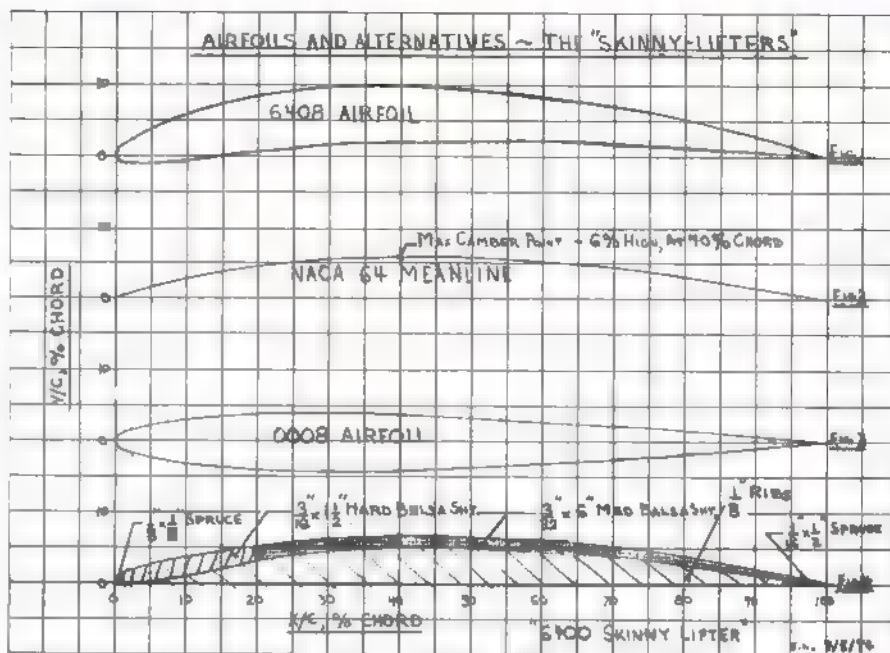 AIRFOILS AND ALTERNATIVES ~ THE "SKINNY-LIFTERS"
10
6408 AIRFOIL
0
MAX CAMBER POINT - 6% HIGH, AT 40% CHORD
NACA 64 MEANLINE
0
Y/C, % CHORD
10
0008 AIRFOIL
0
10
SPRUCE
3/16" x 1 1/2" HARD BALSA SHT.
3/16" x 6" MED BALSA SHT.
1/8" RIBS
SPRUCE
0
0 10 20 30 40 50 60 70 80 90 100
X/C, % CHORD
"6400 SKINNY LIFTER"